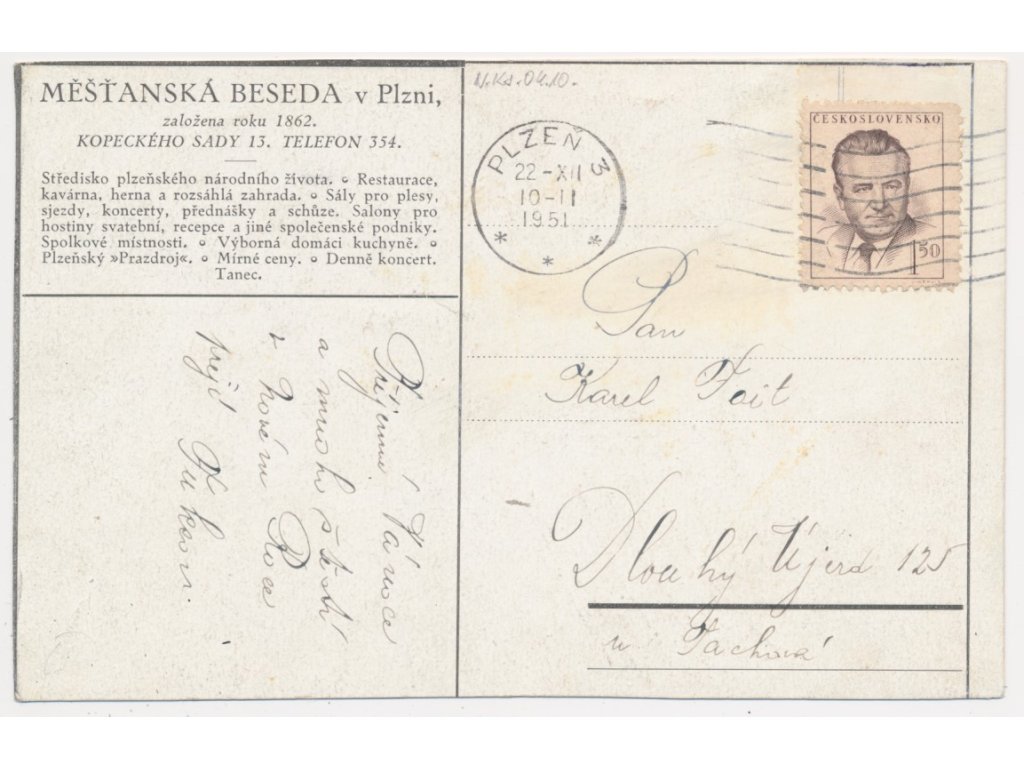 MĚŠŤANSKÁ BESEDA v Plzni,
založena roku 1862.
KOPECKÉHO SADY 13. TELEFON 354.
Středisko plzeňského národního života. ∘ Restaurace,
kavárna, herna a rozsáhlá zahrada. ∘ Sály pro plesy,
sjezdy, koncerty, přednášky a schůze. Salony pro
hostiny svatební, recepce a jiné společenské podniky.
Spolkové místnosti. ∘ Výborná domácí kuchyně. ∘
Plzeňský »Prazdroj«. ∘ Mírné ceny. ∘ Denně koncert.
Tanec.
Příjemné Vánoce
a mnoho štěstí
v Novém Roce
přejí
PLZEŇ 3
22-XII
10-11
1951
ČESKOSLOVENSKO
1 50
Pan
Karel Foit
Dlouhý Újezd 125
u Tachova